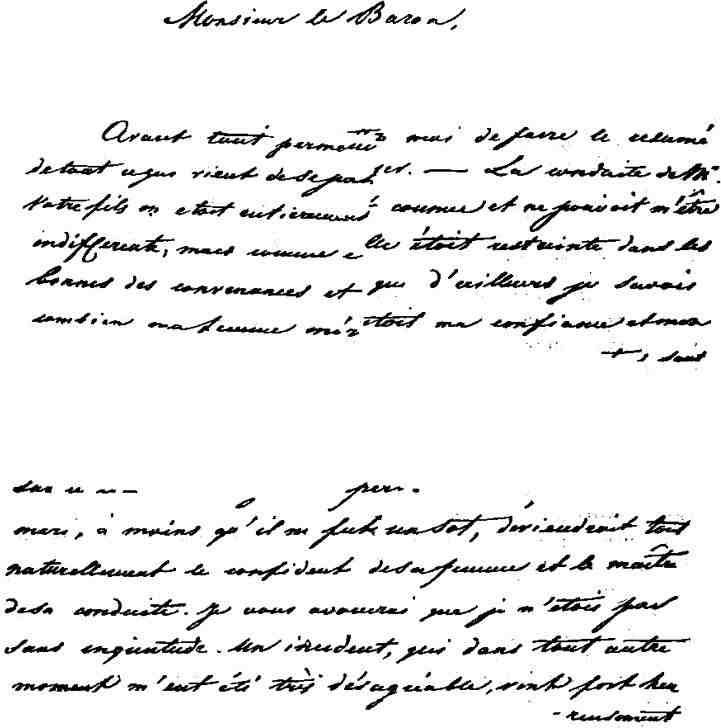 Monsieur le Baron,
Avant tout permettez moi de faire le resumé
de tout ce qui vient de se passer. — La conduite de Mr.
Votre fils m'etoit entierement connue et ne pouvoit m'être
indifferente, mais comme elle étoit restreinte dans les
bornes des convenances et que d'ailleurs je savois
combien ma femme méritoit ma confiance et mon
mari, à moins qu'il ne fut un sot, déviendroit tout
naturellement le confident de sa femme et le maître
de sa conduite. Je vous avouerai que je n'étois pas
sans inquietude. Un incident, qui dans tout autre
moment m'eut été très désagréable, vint fort heu
-reusement